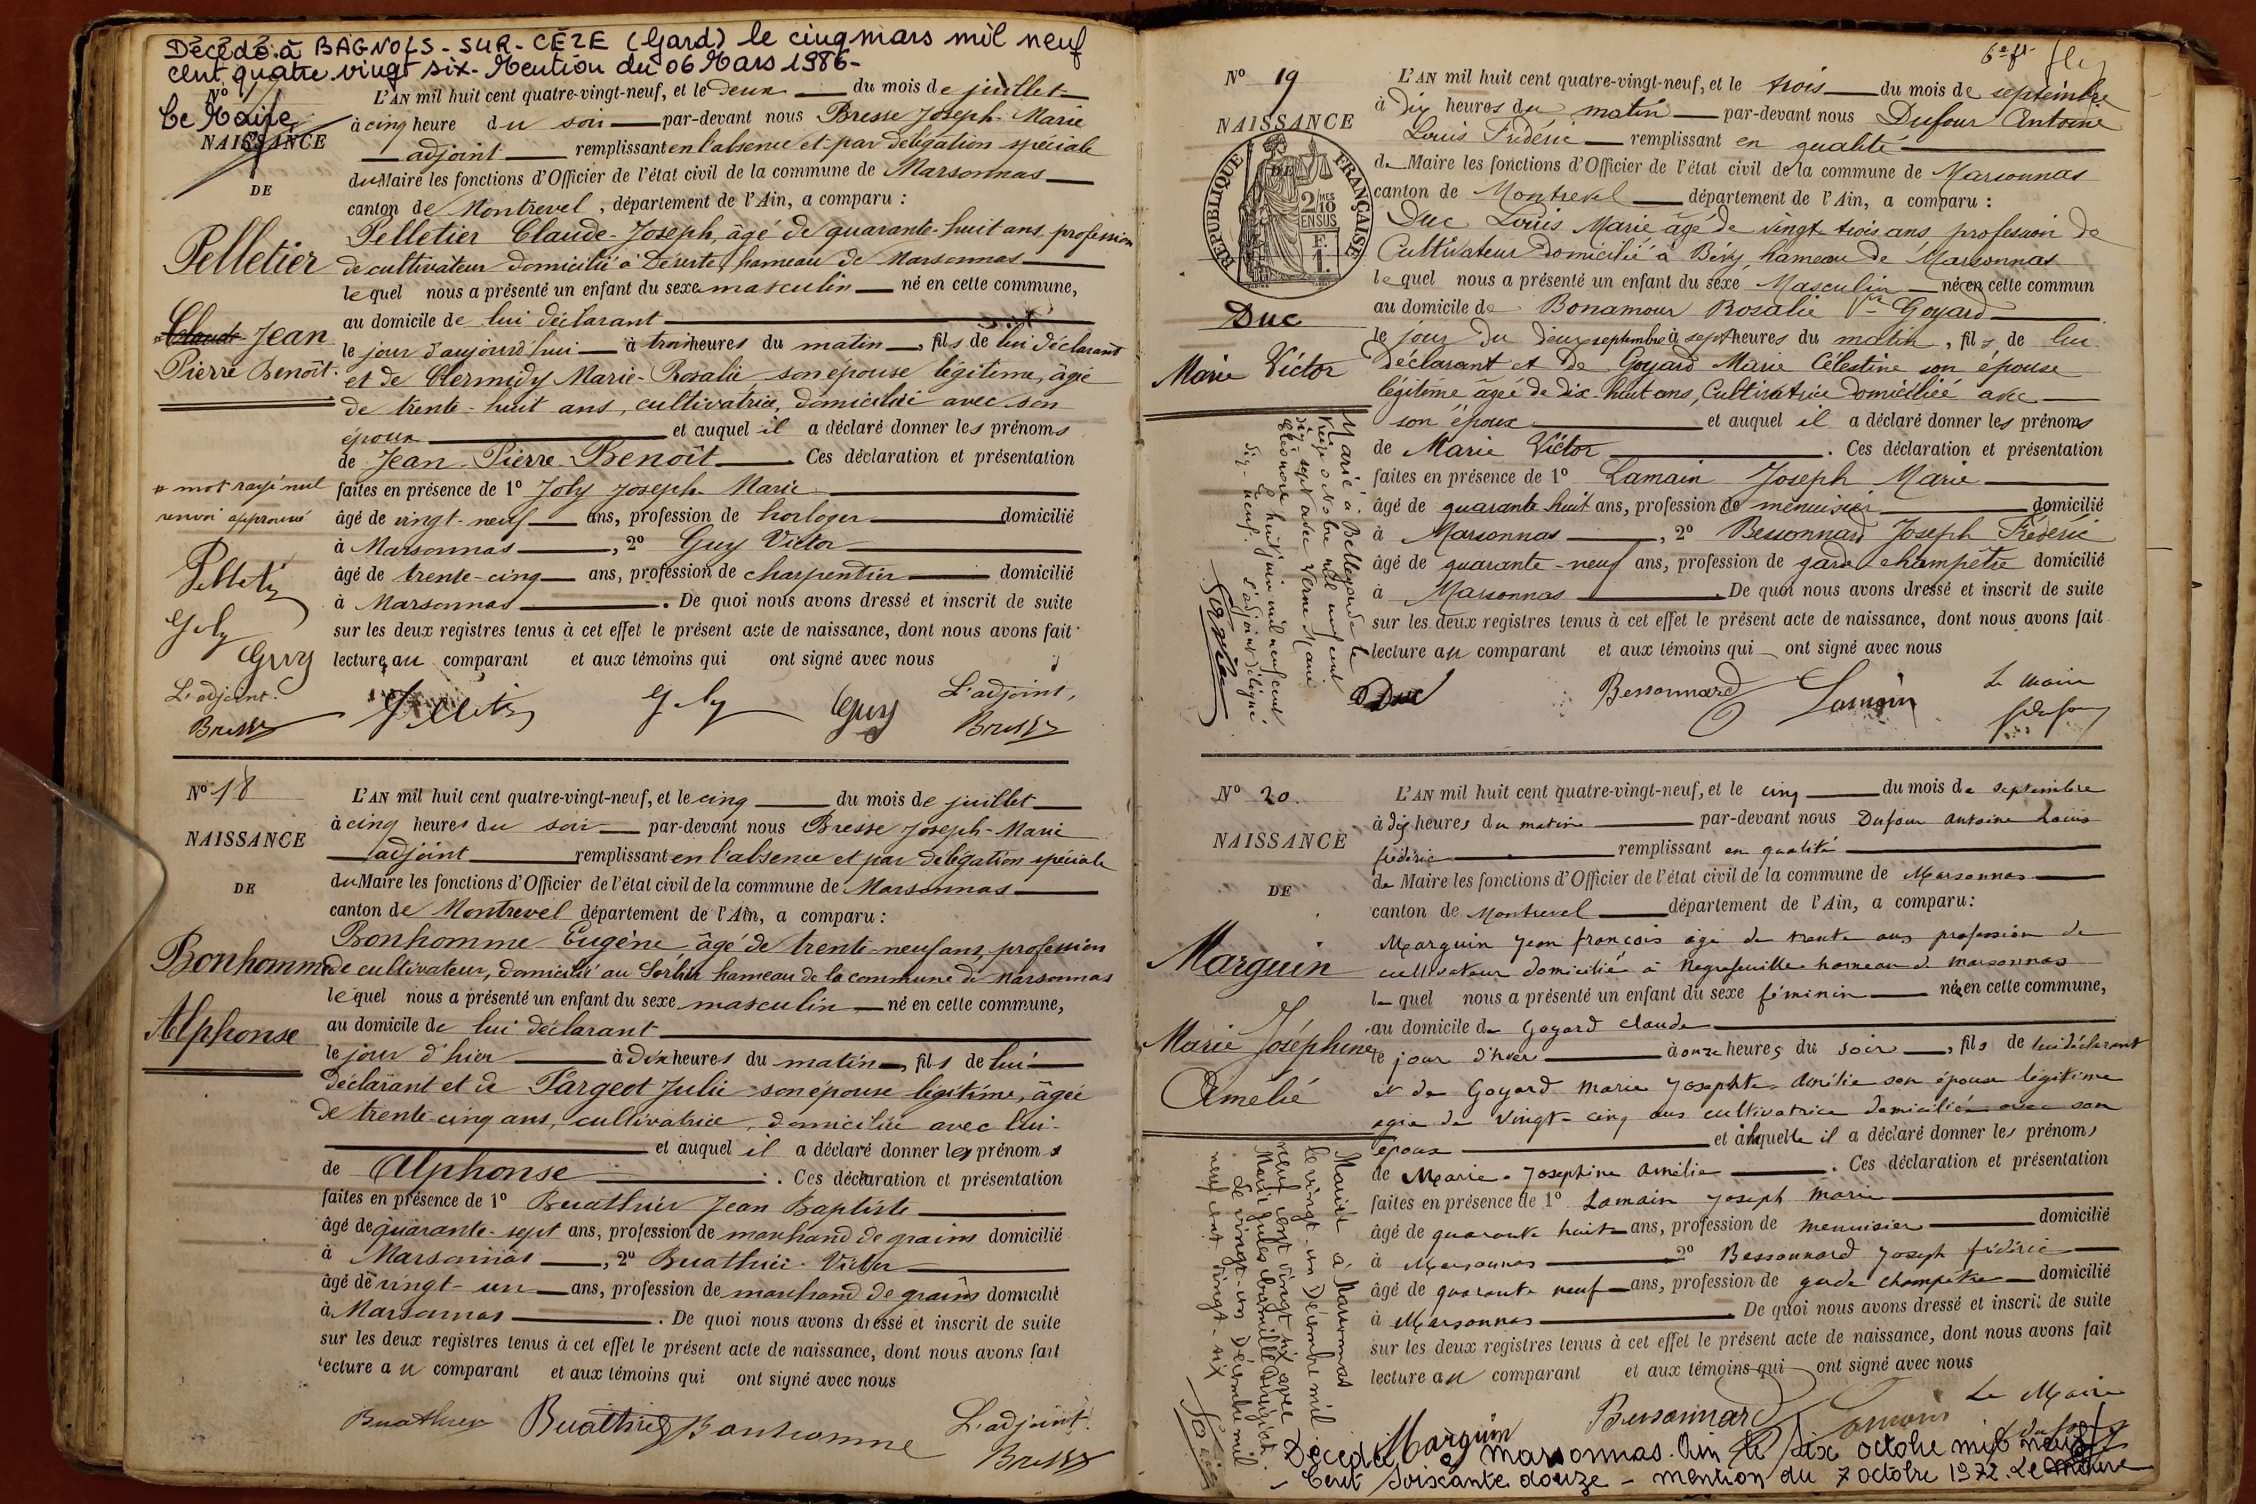 Décédé à BAGNOLS-SUR-CÈZE (Gard) le cinq mars mil neuf
cent quatre vingt six - Mention du 06 Mars 1986-
Le Maire
N°
NAISSANCE
DE
Pelletier
Claude Jean
Pierre Benoît.
mot rayé nul
renvoi approuvé
Guy
L'adjoint.
L'AN mil huit cent quatre-vingt-neuf, et le deux du mois de juillet
à cinq heure du soir par-devant nous Bresse Joseph-Marie
adjoint remplissant en l'absence et par délégation spéciale
du Maire les fonctions d'Officier de l'état civil de la commune de Marsonnas
canton de Montrevel, département de l'Ain, a comparu :
Pelletier Claude-Joseph, âgé de quarante-huit ans, profession
de cultivateur domicilié à hameau de Marsonnas
lequel nous a présenté un enfant du sexe masculin né en cette commune,
au domicile de lui déclarant
le jour d'aujourd'hui à trois heures du matin, fils de lui déclarant
et de Marie-Rosalie son épouse légitime, âgée
de trente-huit ans, cultivatrice, domiciliée avec son
époux et auquel il a déclaré donner les prénoms
de Jean-Pierre-Benoît. Ces déclaration et présentation
faites en présence de 1° Joly Joseph-Marie
âgé de vingt-neuf ans, profession de horloger domicilié
à Marsonnas, 2° Guy Victor
âgé de trente-cinq ans, profession de charpentier domicilié
à Marsonnas. De quoi nous avons dressé et inscrit de suite
sur les deux registres tenus à cet effet le présent acte de naissance, dont nous avons fait
lecture au comparant et aux témoins qui ont signé avec nous
Guy L'adjoint,
N° 18
NAISSANCE
DE
Bonhomme
Alphonse
L'AN mil huit cent quatre-vingt-neuf, et le cinq du mois de juillet
à cinq heures du soir par-devant nous Bresse Joseph-Marie
adjoint remplissant en l'absence et par délégation spéciale
du Maire les fonctions d'Officier de l'état civil de la commune de Marsonnas
canton de Montrevel département de l'Ain, a comparu :
Bonhomme Eugène âgé de trente-neuf ans, profession
de cultivateur, domicilié au hameau de la commune de Marsonnas
lequel nous a présenté un enfant du sexe masculin né en cette commune,
au domicile de lui déclarant
le jour d'hier à dix heures du matin, fils de lui
déclarant et de Fargeot Julie son épouse légitime, âgée
de trente-cinq ans, cultivatrice, domiciliée avec lui.
et auquel il a déclaré donner les prénoms
de Alphonse. Ces déclaration et présentation
faites en présence de 1° Buathier Jean Baptiste
âgé de quarante-sept ans, profession de marchand de grains domicilié
à Marsonnas, 2° Buathier Victor
âgé de vingt-un ans, profession de marchand de grains domicilié
à Marsonnas. De quoi nous avons dressé et inscrit de suite
sur les deux registres tenus à cet effet le présent acte de naissance, dont nous avons fait
lecture au comparant et aux témoins qui ont signé avec nous
Buathier Buathier Bonhomme L'adjoint.
N° 19
NAISSANCE
DE
RÉPUBLIQUE FRANÇAISE
2/10 EN SUS
Duc
Marie Victor
L'AN mil huit cent quatre-vingt-neuf, et le trois du mois de septembre
à dix heures du matin par-devant nous Dufour Antoine
Louis Frédéric remplissant en qualité
de Maire les fonctions d'Officier de l'état civil de la commune de Marsonnas
canton de Montrevel département de l'Ain, a comparu :
Duc Louis Marie âgé de vingt trois ans profession de
Cultivateur domicilié à Béry hameau de Marsonnas
lequel nous a présenté un enfant du sexe Masculin né en cette commun
au domicile de Bonamour Rosalie Vve Goyard
le jour du deux septembre à sept heures du matin, fils de lui
déclarant et de Goyard Marie Célestine son épouse
légitime âgée de dix-huit ans, Cultivatrice domiciliée avec
son époux et auquel il a déclaré donner les prénoms
de Marie Victor. Ces déclaration et présentation
faites en présence de 1° Lamain Joseph Marie
âgé de quarante huit ans, profession de menuisier domicilié
à Marsonnas, 2° Bessonnard Joseph Frédéric
âgé de quarante-neuf ans, profession de garde champêtre domicilié
à Marsonnas. De quoi nous avons dressé et inscrit de suite
sur les deux registres tenus à cet effet le présent acte de naissance, dont nous avons fait
lecture au comparant et aux témoins qui ont signé avec nous
Duc Bessonnard Lamain Le maire
Marié à Bellegarde le
treize octobre mil neuf cent
dix sept avec Verne Marie
Eléonore huit juin mil neuf cent
dix-neuf. L'adjoint délégué,
N° 20.
NAISSANCE
DE
Marguin
Marie Joséphine
Amélie
L'AN mil huit cent quatre-vingt-neuf, et le cinq du mois de septembre
à dix heures du matin par-devant nous Dufour antoine Louis
frédéric remplissant en qualité
de Maire les fonctions d'Officier de l'état civil de la commune de Marsonnas
canton de Montrevel département de l'Ain, a comparu :
Marguin Jean françois âgé de trente ans profession de
cultivateur domicilié à Negrefeuille hameau de marsonnas
le quel nous a présenté un enfant du sexe féminin née en cette commune,
au domicile de Goyard Claude
le jour d'hier à onze heures du soir, fils de lui déclarant
et de Goyard Marie Josephte Amélie son épouse légitime
agée de vingt-cinq ans cultivatrice domiciliée avec son
époux et à laquelle il a déclaré donner les prénoms
de Marie-Josephine Amélie. Ces déclaration et présentation
faites en présence de 1° Lamain Joseph Marie
âgé de quarante huit ans, profession de menuisier domicilié
à Marsonnas 2° Bessonnard Joseph frédéric
âgé de quarante neuf ans, profession de garde champêtre domicilié
à Marsonnas. De quoi nous avons dressé et inscrit de suite
sur les deux registres tenus à cet effet le présent acte de naissance, dont nous avons fait
lecture au comparant et aux témoins qui ont signé avec nous
Marguin Bessonnard Lamain Le Maire
Mariée à Marsonnas
le vingt-un Décembre mil
neuf cent vingt six avec
Le vingt-un Décembre mil
neuf cent vingt-six
Décédée à Marsonnas. Ain le six octobre mil neuf
Cent soixante douze - mention du 7 octobre 1972. Le Maire